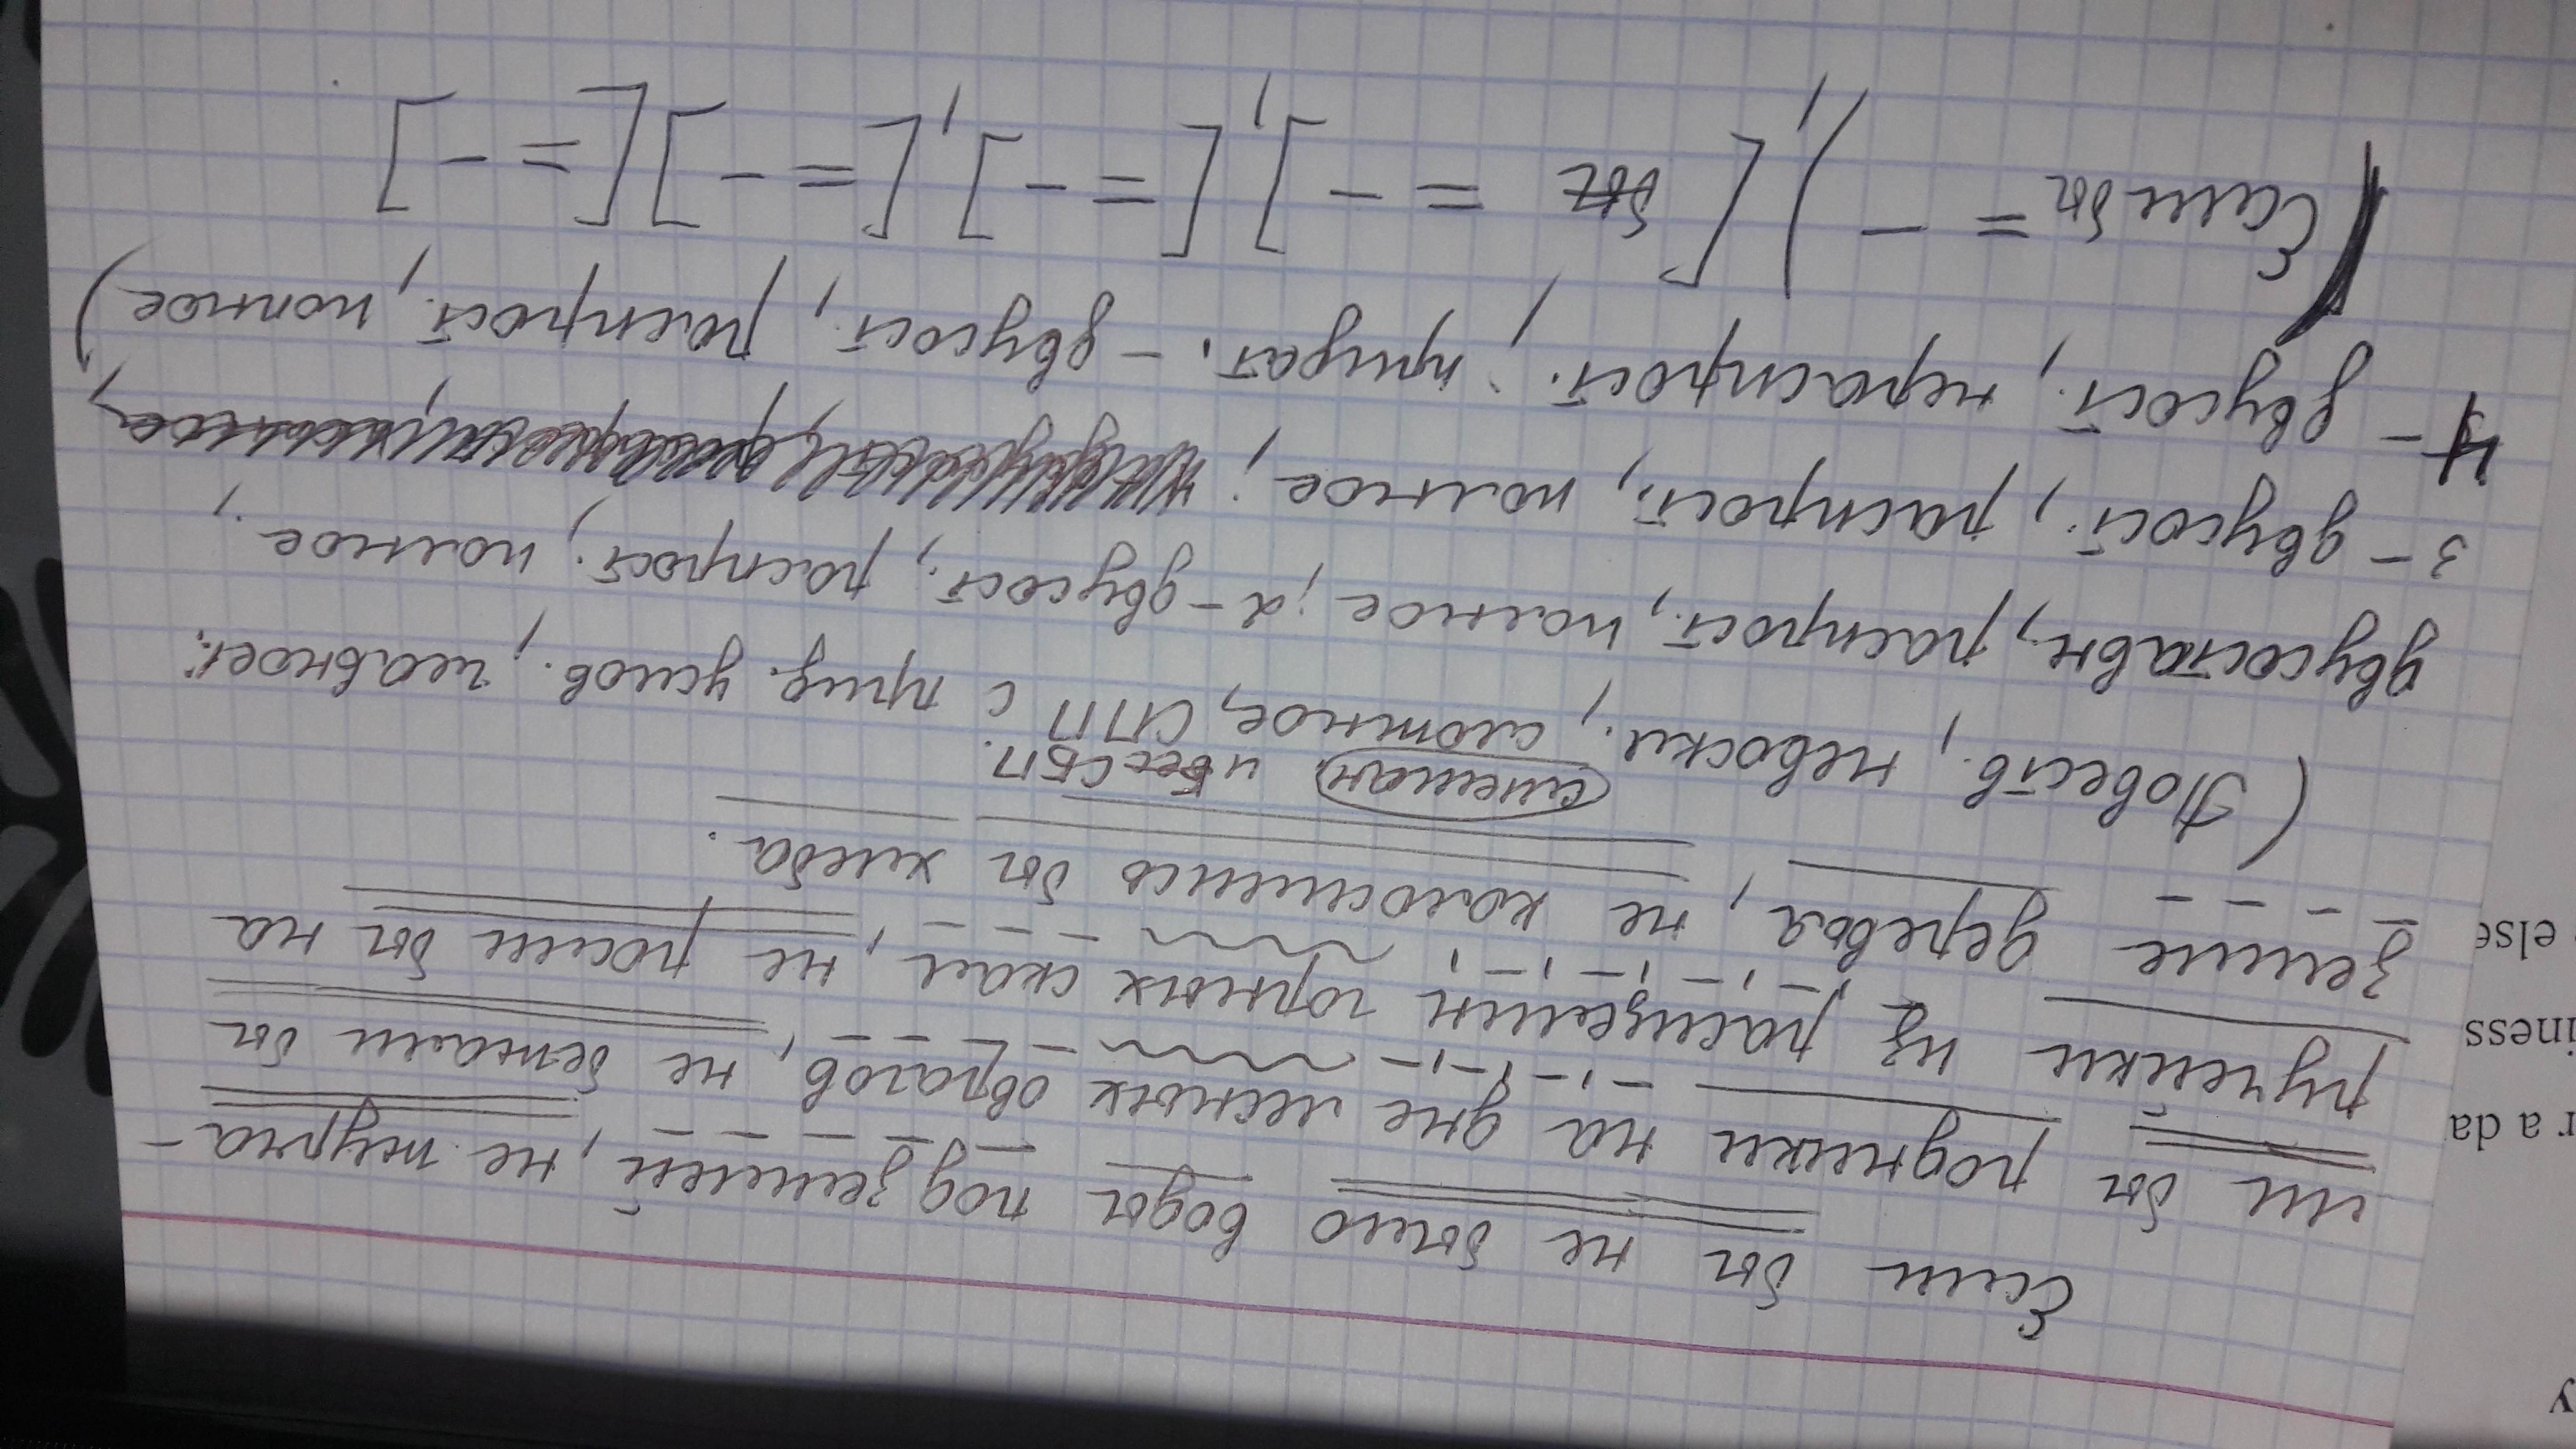 Если бы не было воды под землёй, не журча-
ли бы роднички на дне лесных оврагов, не бежали бы
ручейки из расщелин горных скал, не росли бы на
земле деревья, не колосились бы хлеба.
(Повеств., невоскл., сложное, СПП с прид. услов.; главное:
смешан. и СБП.
двусоставн., распрост., полное; 2 - двусост., распрост., полное;
3 - двусост., распрост., полное;
4 - двусост., нераспрост.; придат. - двусост., распрост., полное)
(Если бы = -), [бы = -], [= -], [= -] [= -]
else
iness
r a da
y